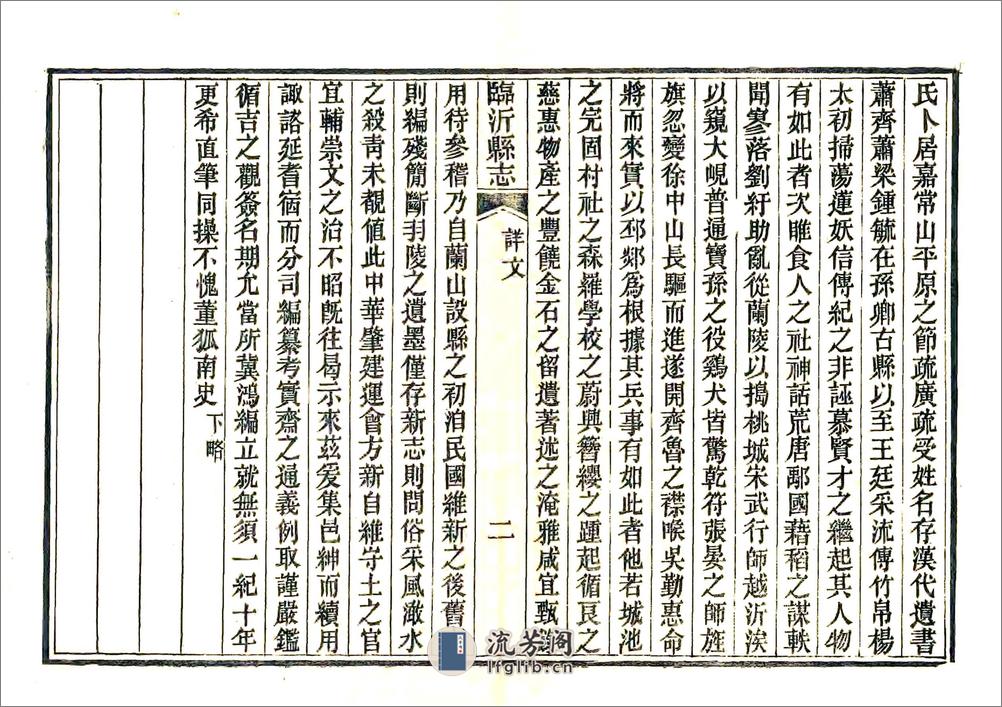 氏卜居嘉常山平原之節疏廣疏受姓名存漢代遺書
蕭齊蕭梁鍾毓在孫卿古縣以至王廷采流傳竹帛楊
太初掃蕩蓮妖信傳紀之非誣慕賢才之繼起其人物
有如此者次睢食人之社神話荒唐鄅國藉稻之謀軼
聞寥落劉紆助亂從蘭陵以搗桃城宋武行師越沂涘
以窺大峴普通寶孫之役鷄犬皆驚乾符張晏之師旌
旗忽變徐中山長驅而進遂開齊魯之襟喉吳勤惠命
將而來實以邳郯爲根據其兵事有如此者他若城池
之完固村社之森羅學校之蔚興簪纓之踵起循良之
慈惠物產之豐饒金石之留遺著述之淹雅咸宜甄
臨沂縣志
詳文
二
用待參稽乃自蘭山設縣之初洎民國維新之後舊
則編殘簡斷羽陵之遺墨僅存新志則問俗采風澉水
之殺靑未覩値此中華肇建運會方新自維守土之官
宜輔崇文之治不昭旣往曷示來茲爰集邑紳而續用
諏諮延耆宿而分司編纂考實齋之通義例取謹嚴鑑
循吉之觀簽名期允當所冀鴻編立就無須一紀十年
更希直筆同操不愧董狐南史下略
流芳阁
lfglib.cn